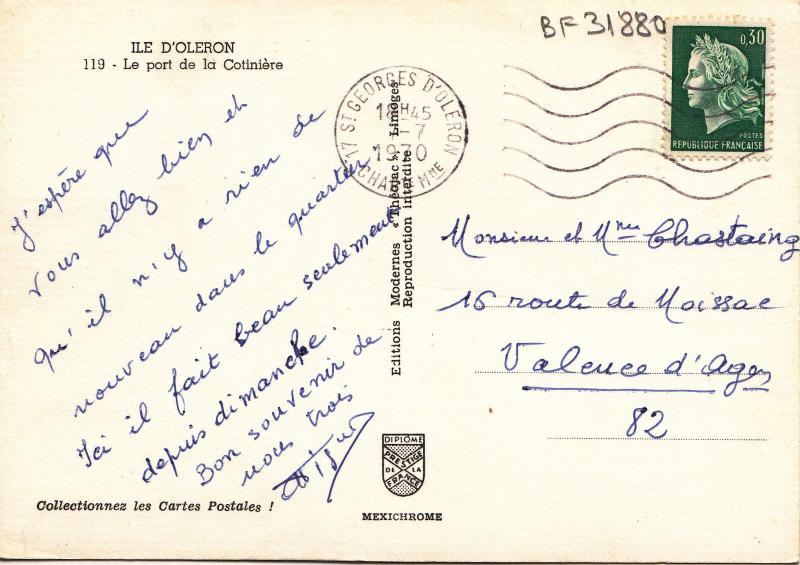 BF 31880
ILE D'OLERON
119 - Le port de la Cotinière
17 ST GEORGES D'OLERON
18H45
-7
1970
CHARTE MME
0,30
POSTES
REPUBLIQUE FRANÇAISE
J'espère que
vous allez bien et
qu'il n'y a rien de
nouveau dans le quartier
Ici il fait beau seulement
depuis dimanche.
Bon souvenir de
nous trois
Editions Modernes « Théojac », Limoges
Reproduction interdite
Monsieur et Mme Chastaing
16 route de Moissac
Valence d'Agen
82
DIPLÔME
PRESTIGE
DE LA
FRANCE
Collectionnez les Cartes Postales !
MEXICHROME